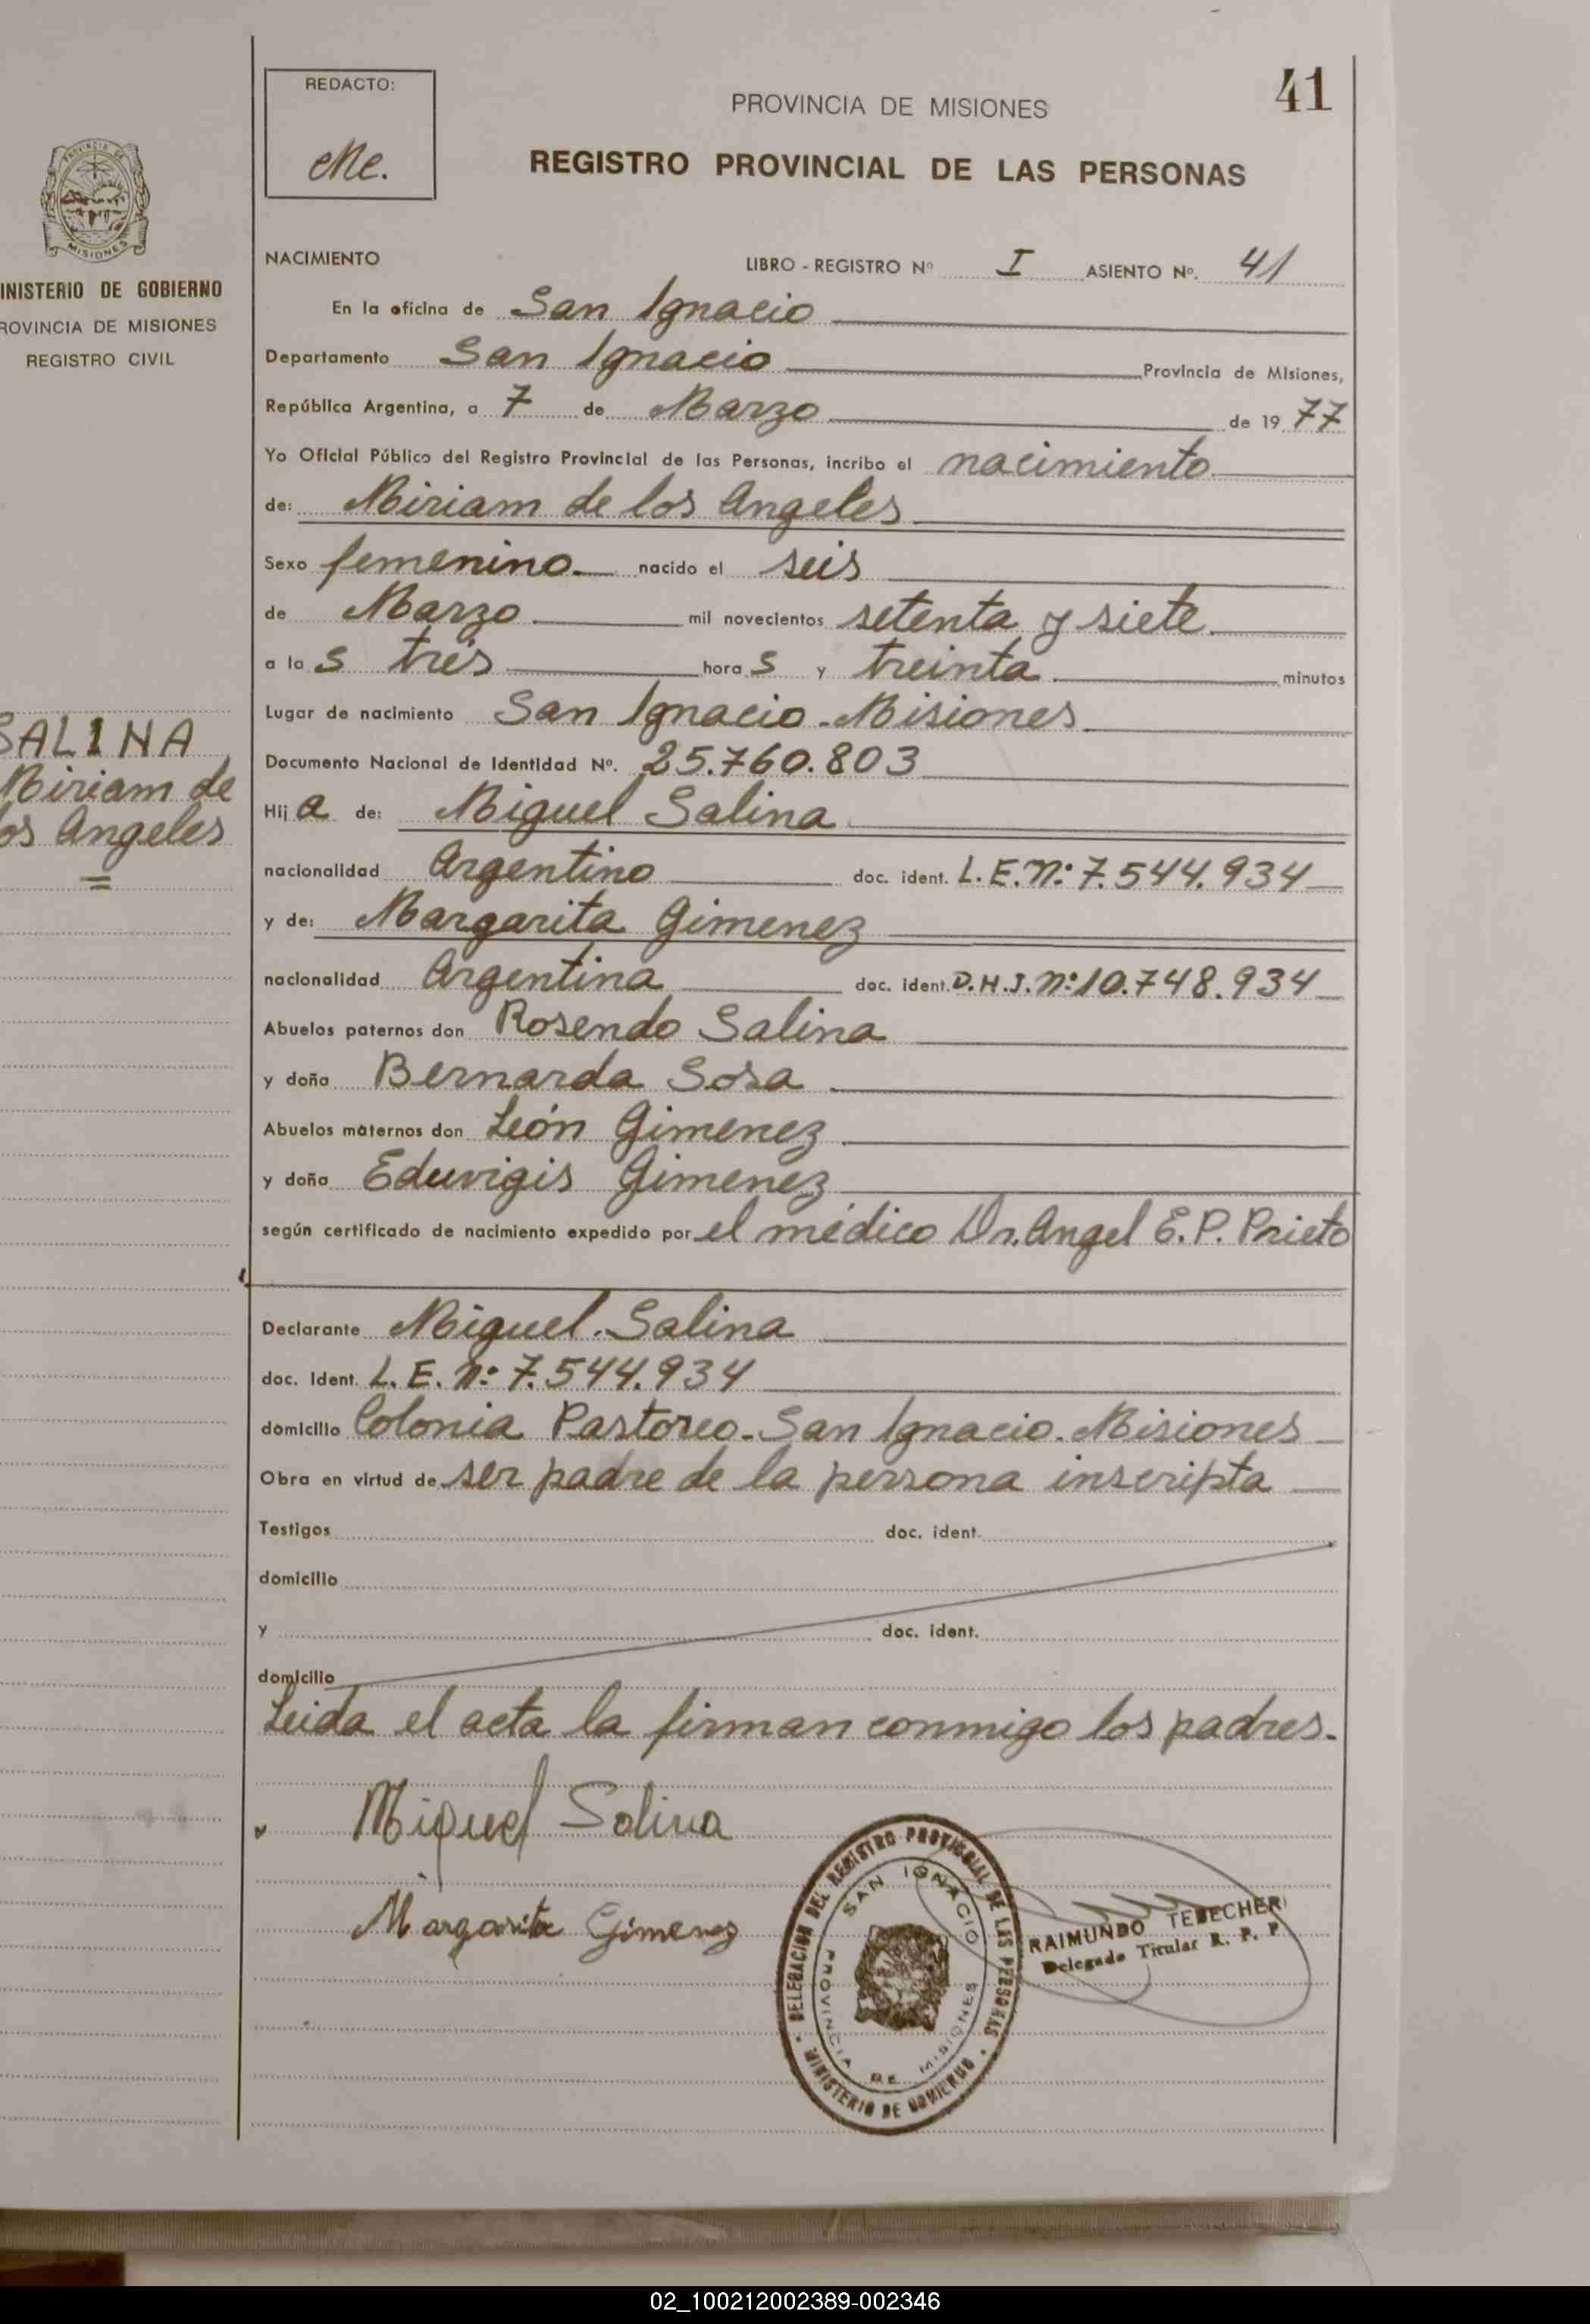 41
REDACTO:
PROVINCIA DE MISIONES
REGISTRO PROVINCIAL DE LAS PERSONAS
MISIONES
INISTERIO DE GOBIERNO
ROVINCIA DE MISIONES
REGISTRO CIVIL
SALINA
Miriam de
os Angeles
NACIMIENTO LIBRO - REGISTRO Nº I ASIENTO Nº. 41
En la oficina de San Ignacio
Departamento San Ignacio Provincia de Misiones,
República Argentina, a 7 de Marzo de 19 77
Yo Oficial Público del Registro Provincial de las Personas, incribo el nacimiento
de: Miriam de los Angeles
Sexo femenino. nacido el seis
de Marzo mil novecientos setenta y siete
a la s tres hora s y treinta minutos
Lugar de nacimiento San Ignacio - Misiones
Documento Nacional de Identidad Nº. 25.760.803
Hij a de: Miguel Salina
nacionalidad Argentino doc. ident. L.E.Nº: 7.544.934
y de: Margarita Gimenez
nacionalidad Argentina doc. ident. D.N.I. nº: 10.748.934
Abuelos paternos don Rosendo Salina
y doña Bernarda Sosa
Abuelos maternos don León Gimenez
y doña Eduvigis Gimenez
según certificado de nacimiento expedido por el médico Dr. Angel E.P. Prieto
Declarante Miguel Salina
doc. Ident. L.E. nº: 7.544.934
domicilio Colonia Pastoreo - San Ignacio - Misiones
Obra en virtud de ser padre de la persona inscripta
Testigos doc. ident.
domicilio
y doc. ident.
domicilio
Leida el acta la firman conmigo los padres.
Miguel Salina
Margarita Gimenez
DELEGACION DEL REGISTRO PROVINCIAL DE LAS PERSONAS
MINISTERIO DE GOBIERNO
SAN IGNACIO
PROVINCIA DE MISIONES
RAIMUNDO TEBECHERI
Delegado Titular R. P. P.
02_100212002389-002346